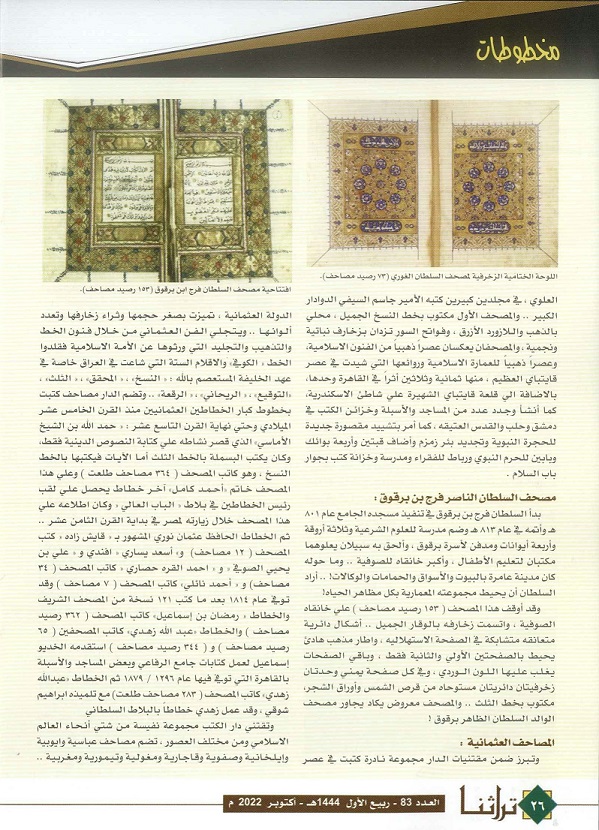 مخطوطات
اللوحة الختامية الزخرفية لمصحف السلطان الغوري (٧٣ رصيد مصاحف).
افتتاحية مصحف السلطان فرج ابن برقوق (١٥٣ رصيد مصاحف).
العلوي ، في مجلدين كبيرين كتبه الأمير جاسم السيفي الدوادار
الكبير .. والمصحف الأول مكتوب بخط النسخ الجميل ، محلي
بالذهب واللازورد الأزرق ، وفواتح السور تزدان بزخارف نباتية
ونجمية ، والمصحفان يعكسان عصراً ذهبياً من الفنون الاسلامية،
وعصراً ذهبياً للعمارة الاسلامية وروائعها التي شيدت في عصر
قايتباي العظيم ، منها ثمانية وثلاثين أثراً في القاهرة وحدها،
بالاضافة الي قلعة قايتباي الشهيرة علي شاطئ الاسكندرية،
كما أنشأ وجدد عدد من المساجد والأسبلة وخزائن الكتب في
دمشق وحلب والقدس العتيقه ، كما أمر بتشييد مقصورة جديدة
للحجرة النبوية وتجديد بئر زمزم وأضاف قبتين وأربعة بوائك
وبابين للحرم النبوي ورباط للفقراء ومدرسة وخزانة كتب بجوار
باب السلام .
مصحف السلطان الناصر فرج بن برقوق :
بدأ السلطان فرج بن برقوق في تنفيذ مسجده الجامع عام ٨٠١
هـ وأتمه في عام ٨١٣ هـ وضم مدرسة للعلوم الشرعية وثلاثة أروقة
وأربعة أيوانات ومدفن لأسرة برقوق ، وألحق به سبيلان يعلوهما
مكتبان لتعليم الأطفال ، وأكبر خانقاه للصوفية .. وما حوله
كان مدينة عامرة بالبيوت والأسواق والحمامات والوكالات! .. أراد
السلطان أن يحيط مجموعته المعمارية بكل مظاهر الحياه!
وقد أوقف هذا المصحف (١٥٣ رصيد مصاحف ) علي خانقاه
الصوفية ، واتسمت زخارفه بالوقار الجميل .. أشكال دائرية
متعانقه متشابكة في الصفحة الاستهلاليه ، واطار مذهب هادئ
يحيط بالصفحتين الأولي والثانية فقط ، وباقي الصفحات
يغلب عليها اللون الوردي ، وفي كل صفحة يمني وحدتان
زخرفيتان دائريتان مستوحاه من قرص الشمس وأوراق الشجر،
مكتوب بخط الثلث .. والمصحف معروض يكاد يجاور مصحف
الوالد السلطان الظاهر برقوق !
المصاحف العثمانية :
وتبرز ضمن مقتنيات الدار مجموعة نادرة كتبت في عصر
الدولة العثمانية ، تميزت بصغر حجمها وثراء زخارفها وتعدد
ألوانها .. ويتجلي الفن العثماني من خلال فنون الخط
والتذهيب والتجليد التي ورثوها عن الأمة الاسلامية فقلدوا
الخط « الكوفي» والاقلام الستة التي شاعت في العراق خاصة في
عهد الخليفة المستعصم بالله : «النسخ» ، «المحقق» ، «الثلث» ،
«التوقيع» ، «الريحاني» ، «الرقعة» .. وتضم الدار مصاحف كتبت
بخطوط كبار الخطاطين العثمانيين منذ القرن الخامس عشر
الميلادي وحتي نهاية القرن التاسع عشر : « حمد الله بن الشيخ
الأماسي» الذي قصر نشاطه علي كتابة النصوص الدينية فقط،
وكان يكتب البسملة بالخط الثلث أما الآيات فيكتبها بالخط
النسخ ، وهو كاتب المصحف ( ٣٦٤ مصاحف طلعت ) وعلي هذا
المصحف خاتم «أحمد كامل» آخر خطاط يحصل علي لقب
رئيس الخطاطين في بلاط « الباب العالي » وكان اطلاعه علي
هذا المصحف خلال زيارته لمصر في بداية القرن الثامن عشر ..
ثم الخطاط الحافظ عثمان نوري المشهور بـ « قايش زاده » كتب
المصحف ( ١٢ مصاحف ) و« أسعد يساري » افندي و « علي بن
يحيي الصوفي » و « احمد القره حصاري » كاتب المصحف ( ٣٤
مصاحف) و « أحمد نائلي» كاتب المصحف ( ٧ مصاحف ) وقد
توفي عام ١٨١٤ بعد ما كتب ١٢١ نسخة من المصحف الشريف
والخطاط « رمضان بن إسماعيل» كاتب المصحف ( ٣٦٢ رصيد
مصاحف ) والخطاط «عبد الله زهدي» كاتب المصحفين ( ٦٥
رصيد مصاحف ) و ( ٣٤٤ رصيد مصاحف ) استقدمه الخديو
إسماعيل لعمل كتابات جامع الرفاعي وبعض المساجد والأسبلة
بالقاهرة التي توفي فيها عام ١٢٩٦ / ١٨٧٩ ثم الخطاط «عبدالله
زهدي» كاتب المصحف ( ٢٨٣ مصاحف طلعت) مع تلميذه ابراهيم
شوقي ، وقد عمل زهدي خطاطاً بالبلاط السلطاني
وتقتني دار الكتب مجموعة نفيسة من شتي أنحاء العالم
الاسلامي ومن مختلف العصور ، تضم مصاحف عباسية وايوبية
وإيلخانية وصفوية وقاجارية ومغولية وتيمورية ومغربية ..
٢٦
تراثنا
العدد 83 - ربيع الأول 1444هـ - أكتوبر 2022 م